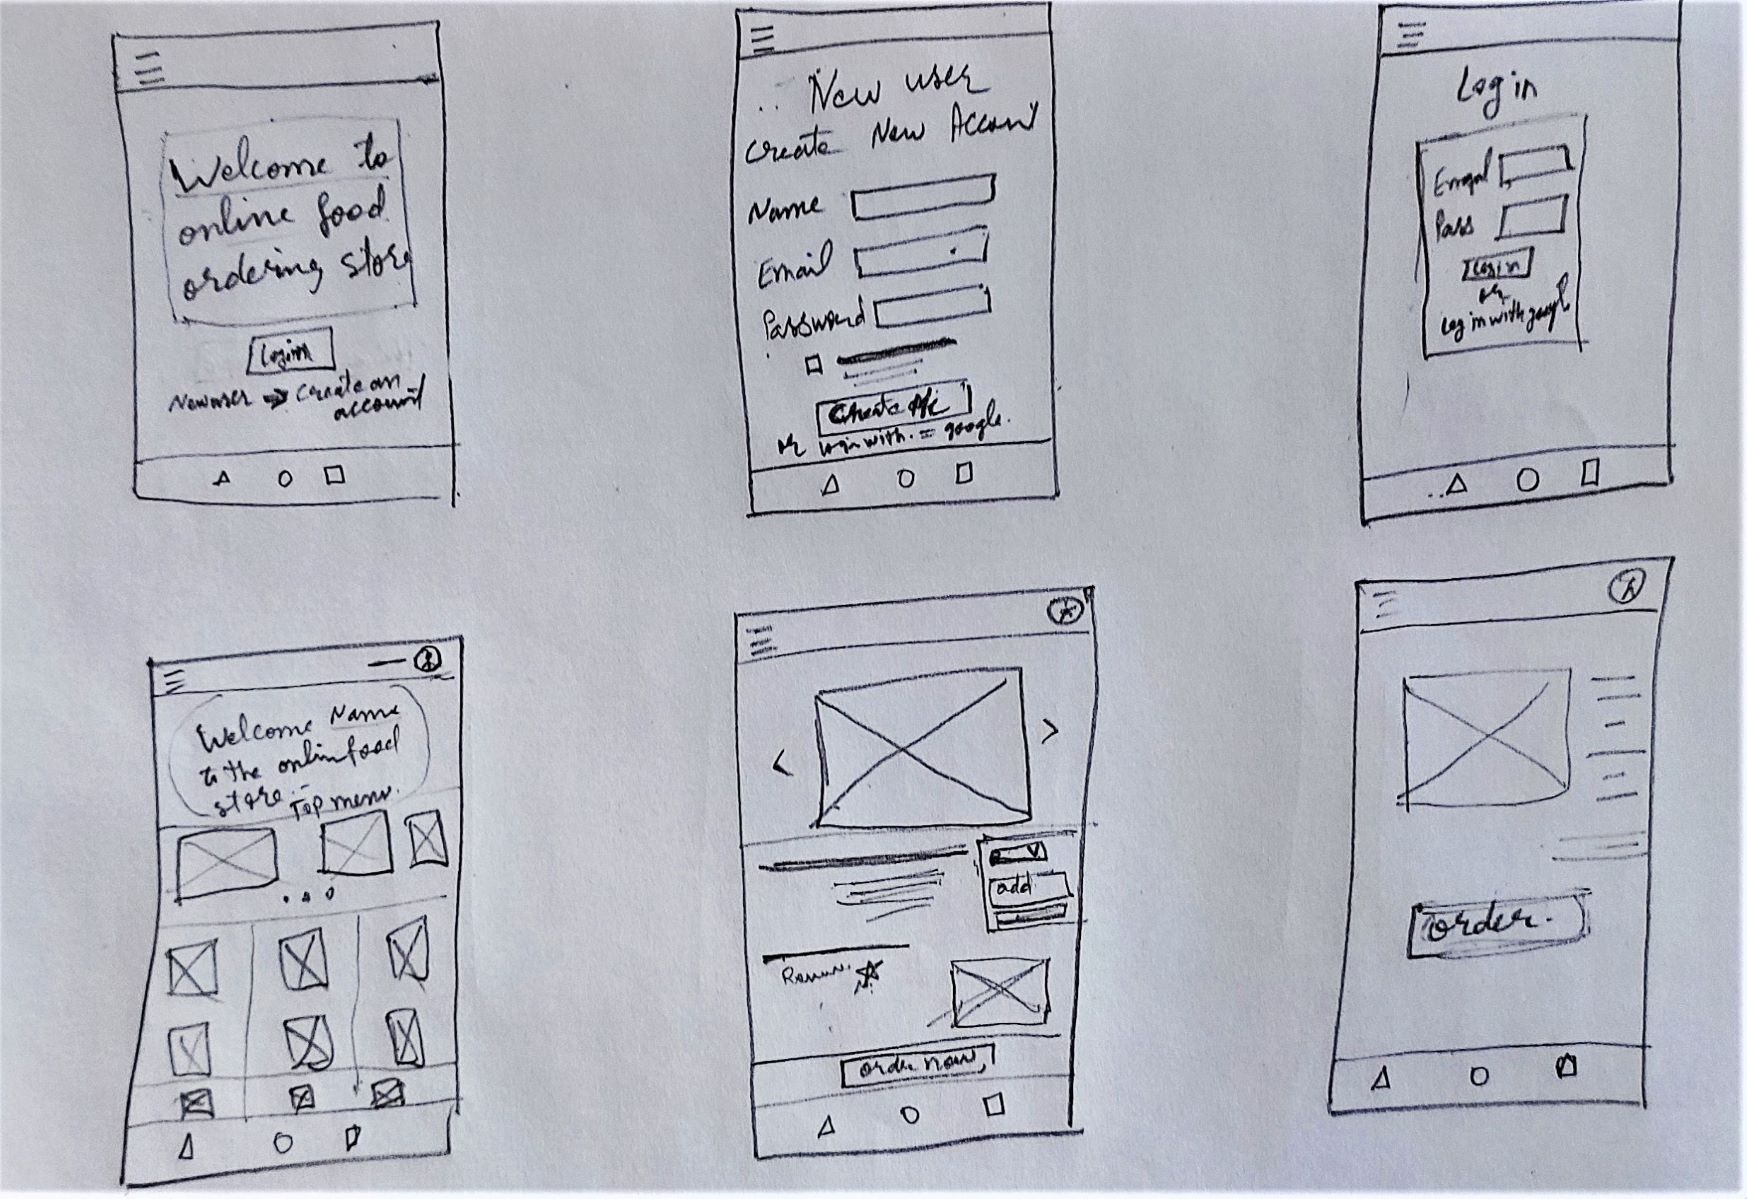 Welcome to
online food
ordering store
Login
New user → Create an
account
New user
Create New Account
Name
Email
Password
Create A/c
or login with = google.
Log in
Email
Pass
Log in
or
Log in with google
Welcome Name
to the online food
store.
Top menu.
add
order now
order.